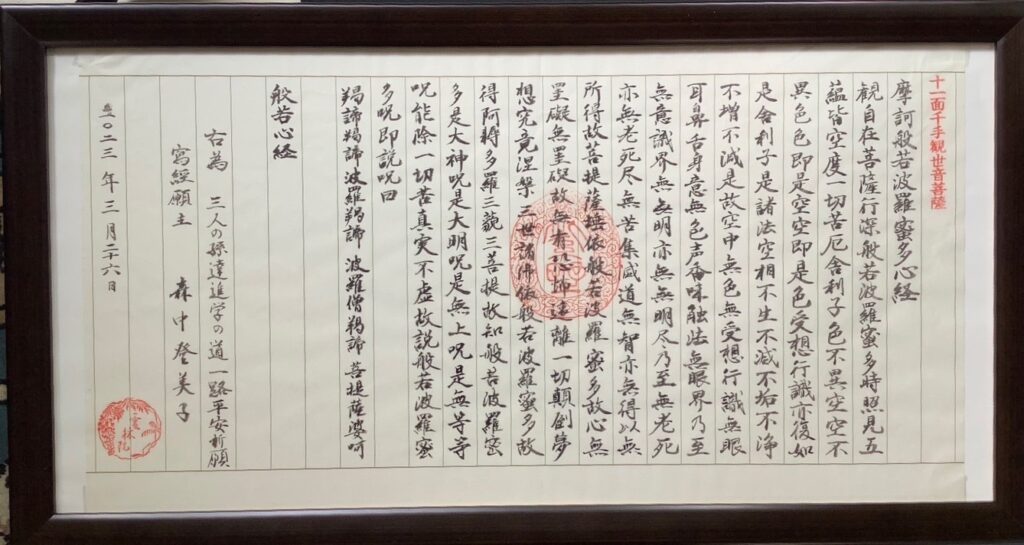 十一面千手観世音菩薩
摩訶般若波羅蜜多心経
観自在菩薩行深般若波羅蜜多時照見五
蘊皆空度一切苦厄舎利子色不異空空不
異色色即是空空即是色受想行識亦復如
是舎利子是諸法空相不生不滅不垢不浄
不増不減是故空中無色無受想行識無眼
耳鼻舌身意無色声香味触法無眼界乃至
無意識界無無明亦無無明尽乃至無老死
亦無老死尽無苦集滅道無智亦無得以無
所得故菩提薩埵依般若波羅蜜多故心無
罣礙無罣礙故無有恐怖遠離一切顛倒夢
想究竟涅槃三世諸佛依般若波羅蜜多故
得阿耨多羅三藐三菩提故知般若波羅蜜
多是大神呪是大明呪是無上呪是無等等
呪能除一切苦真実不虚故説般若波羅蜜
多呪即説呪曰
羯諦羯諦波羅羯諦 波羅僧羯諦 菩提薩婆呵
般若心経
右為 三人の孫達進学の道一路平安祈願
寫經願主 森中登美子
〇二三年三月二十六日
雲林院